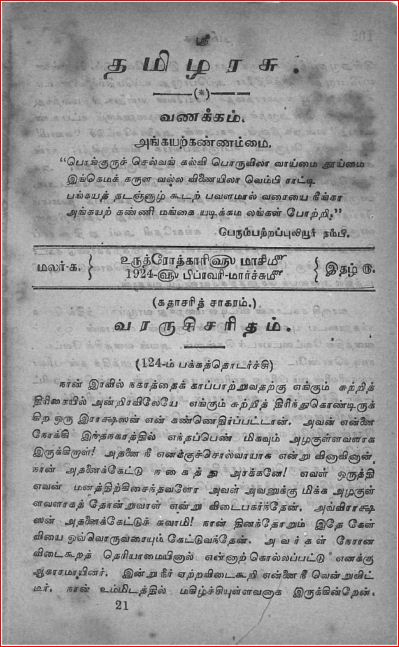 ஸ்ரீ
தமிழரசு.
—(*)—
வணக்கம்.
அங்கயற்கண்ணம்மை.
"பொங்குருச் செல்வங் கல்வி பொருவிலா வாய்மை தூய்மை
இங்கெமக் கருள வல்ல விணையிலா வெம்பி ராட்டி
பங்கயத் தடஞ்சூழ் கூடற் பவளமால் வரையை நீங்கா
அங்கயற் கண்ணி மங்கை யடிக்கம லங்கள் போற்றி."
பெரும்பற்றப்புலியூர் நம்பி.
மலர்-க. } உருத்ரோத்காரிளு மாசிமீ { இதழ் ரு.
1924-ளு பிப்ரவரி-மார்ச்சுமீ
(கதாசரித் சாகரம்.)
வரருசிசரிதம்.
(124-ம் பக்கத்தொடர்ச்சி)
நான் இரவில் நகரத்தைக் காப்பாற்றுவதற்கு எங்கும் சுற்றித்
திரிகையில் அன்றிரவிலேயே எங்கும் சுற்றித் திரிந்துகொண்டிருக்
கிற ஒரு இராக்ஷஸன் என் கண்ணெதிர்ப்பட்டான். அவன் என்னை
நோக்கி இந்நகரத்தில் எந்தப்பெண் மிகவும் அழகுள்ளவளாக
இருக்கிறாள்! அதனை நீ எனக்குச்சொல்வாயாக என்று வினாவினான்.
நான் அதனைக்கேட்டு நகைத்து அரக்கனே! எவள் ஒருத்தி
எவன் மனத்திற்கிசைந்தவளோ அவள் அவனுக்கு மிக்க அழகுள்
ளவளாகத் தோன்றுவாள் என்று விடைபகர்ந்தேன். அவ்விராக்ஷ
ஸன் அதனைக்கேட்டுச் சுவாமி! நான் தினந்தோறும் இதே கேள்
வியை ஒவ்வொருவரையும் கேட்டுவந்தேன். அவர்கள் நேரான
விடைகூறத் தெரியாமையினால் என்னாற் கொல்லப்பட்டு எனக்கு
ஆகாரமாயினர். இன்று நீர் ஏற்றவிடைகூறி என்னை நீ வென்றுவிட்
டீர். நான் உம்மிடத்தில் மகிழ்ச்சியுள்ளவனாக இருக்கின்றேன்.
21